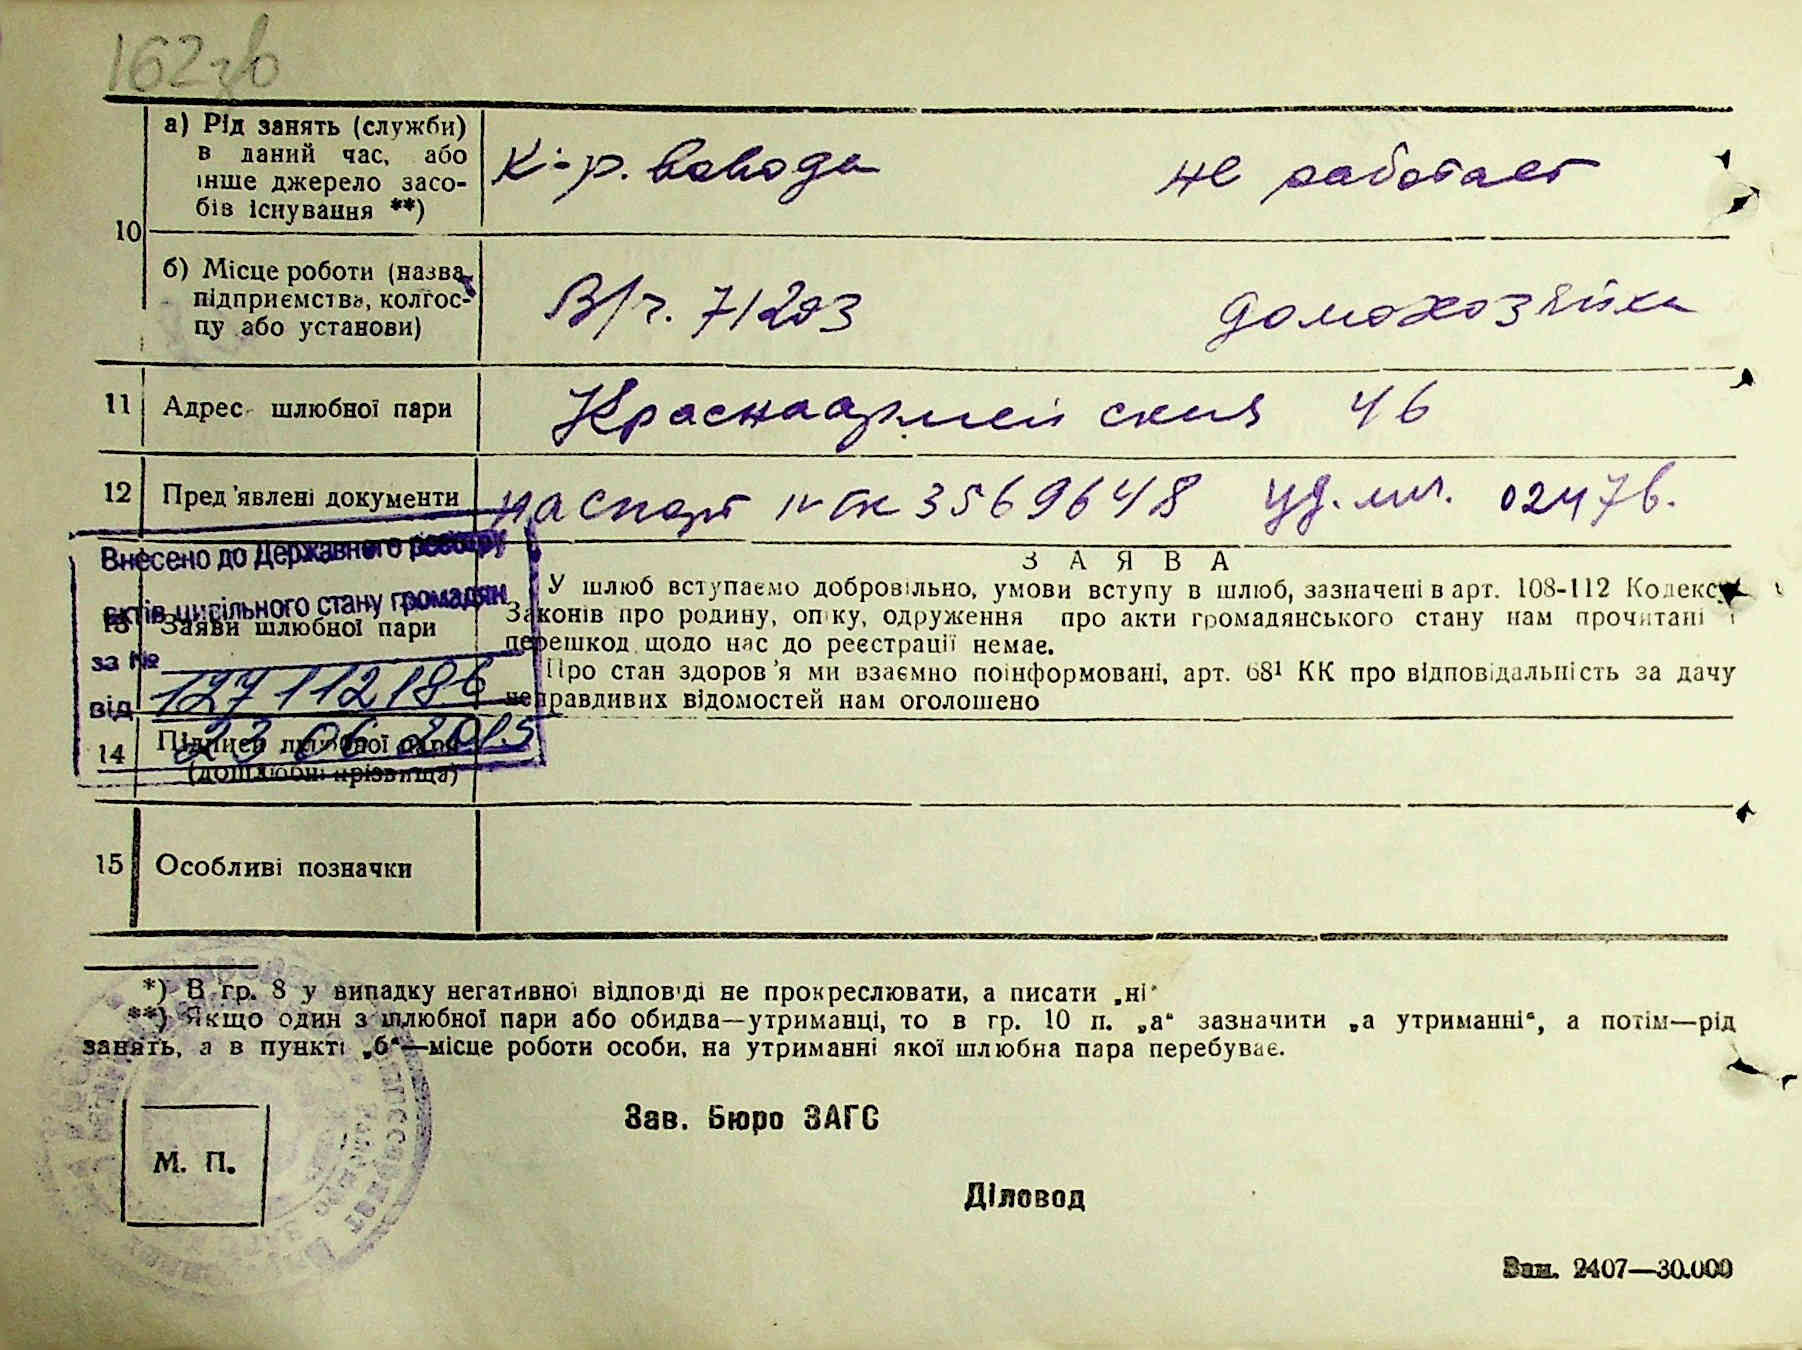 162зв
а) Рід занять (служби)
в даний час, або
інше джерело засо-
бів існування **)
К-р. взвода
не работает
10
б) Місце роботи (назва
підприємства, колгос-
пу або установи)
В/ч. 71203
домохозяйка
11 Адрес шлюбної пари
Красноармейская 46
12 Пред'явлені документи
паспорт 3569648 уд. лич. 02476.
Внесено до Державного реєстру
актів цивільного стану громадян
за №
127112186
від 23 06 2015
13 Заяви шлюбної пари
ЗАЯВА
У шлюб вступаємо добровільно, умови вступу в шлюб, зазначені в арт. 108-112 Кодексу
Законів про родину, опіку, одруження про акти громадянського стану нам прочитані і
перешкод щодо нас до реєстрації немає.
Про стан здоров'я ми взаємно поінформовані, арт. 68¹ КК про відповідальність за дачу
неправдивих відомостей нам оголошено
14 Підписи шлюбної пари
(дошлюбні прізвища)
15 Особливі позначки
*) В гр. 8 у випадку негативної відповіді не прокреслювати, а писати „ні"
**) Якщо один з шлюбної пари або обидва—утриманці, то в гр. 10 п. „а" зазначити „а утриманні", а потім—рід
занять, а в пункті „б"—місце роботи особи, на утриманні якої шлюбна пара перебуває.
Зав. Бюро ЗАГС
М. П.
Діловод
Зам. 2407—30.000